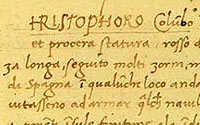 HRISTOPHORO Colũbo
et procera statura, rosso d
za longa, seguito molti zorni, in
di Spagna ĩ qualũche loco anda
iutasseno ad armar qlch̃ nauil